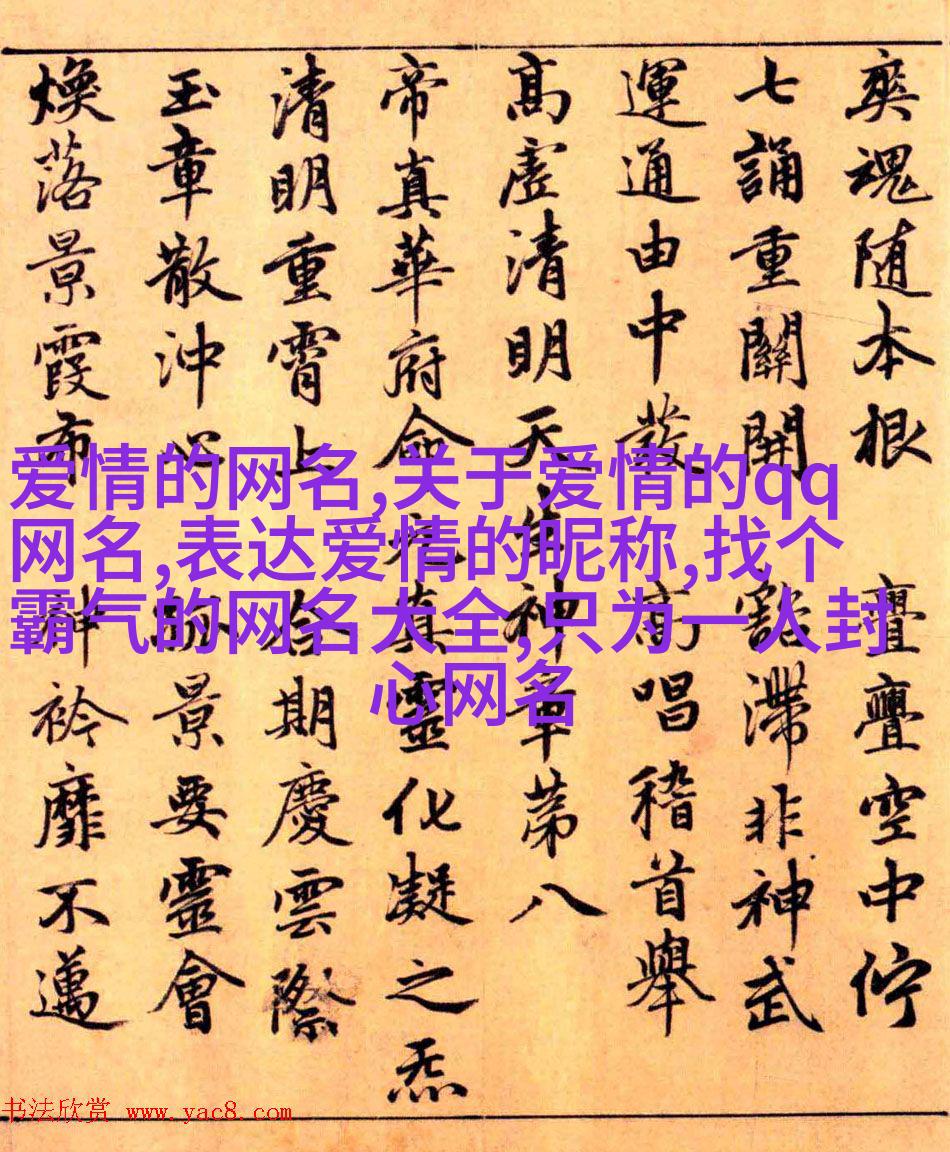 爽魂随本根 亹亹空中佇
七誦重關開 豁滯非神武
運通由中發 高唱稽首舉
髙虛清明天生神章苐八
帝真華府命元真靈化凝之炁
清明重霄上 合期慶雲際
玉章散沖心 景要靈會
煥落景霞布 神衿靡不邁
爱情的网名,关于爱情的qq
网名,表达爱情的昵称,找个
霸气的网名大全,只为一人封
心网名
书法欣赏 www.yac8.com